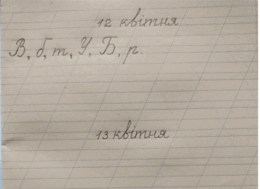 12 квітня
В, б, т, У, Б, р.
13 квітня